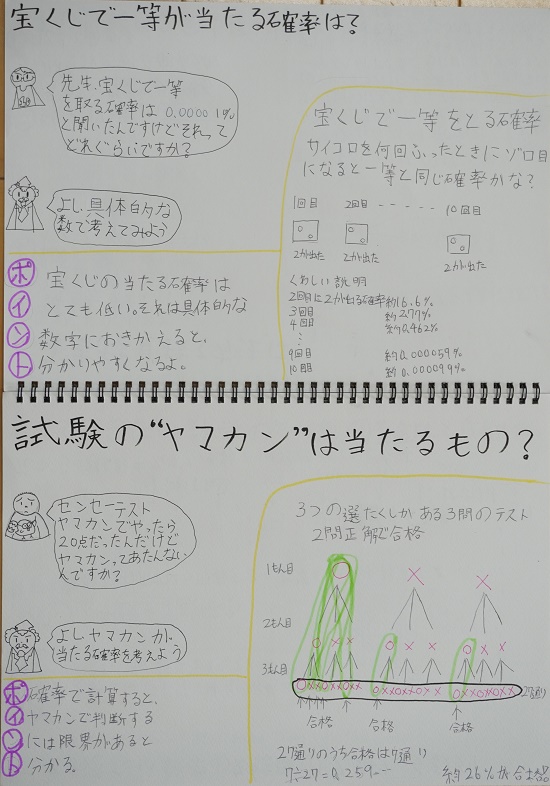 宝くじで一等が当たる確率は?
先生、宝くじで一等
を取る確率は0.00001%
と聞いたんですけどそれって
どれぐらいですか?
よし具体的な
数で考えてみよう
ポイント
宝くじの当たる確率は
とても低い。それは具体的な
数字におきかえると、
分かりやすくなるよ。
宝くじで一等をとる確率
サイコロを何回ふったときにゾロ目
になると一等と同じ確率かな?
1回目 2回目 ----- 10回目
2が出た 2が出た 2が出た
くわしい説明
2回目に2が出る確率 約16.6%
3回目 約2.77%
4回目 約0.462%
⋮
9回目 約0.000059%
10回目 約0.0000099%
試験の“ヤマカン”は当たるもの?
センセーテスト
ヤマカンでやったら
20点だったんだけど
ヤマカンってあたんない
んですか?
よしヤマカンが、
当たる確率を考えよう
ポイント
確率で計算すると、
ヤマカンで判断する
には限界があると
分かる。
3つの選たくしがある3問のテスト
2問正解で合格
1もん目 ○ × ×
2もん目 ○ × × ○ × × ○ × ×
3もん目 ○××○××○×× ○××○××○×× ○××○××○×× 27通り
合格 合格 合格
27通りのうち合格は7通り
7÷27=0.259--- 約26%が合格